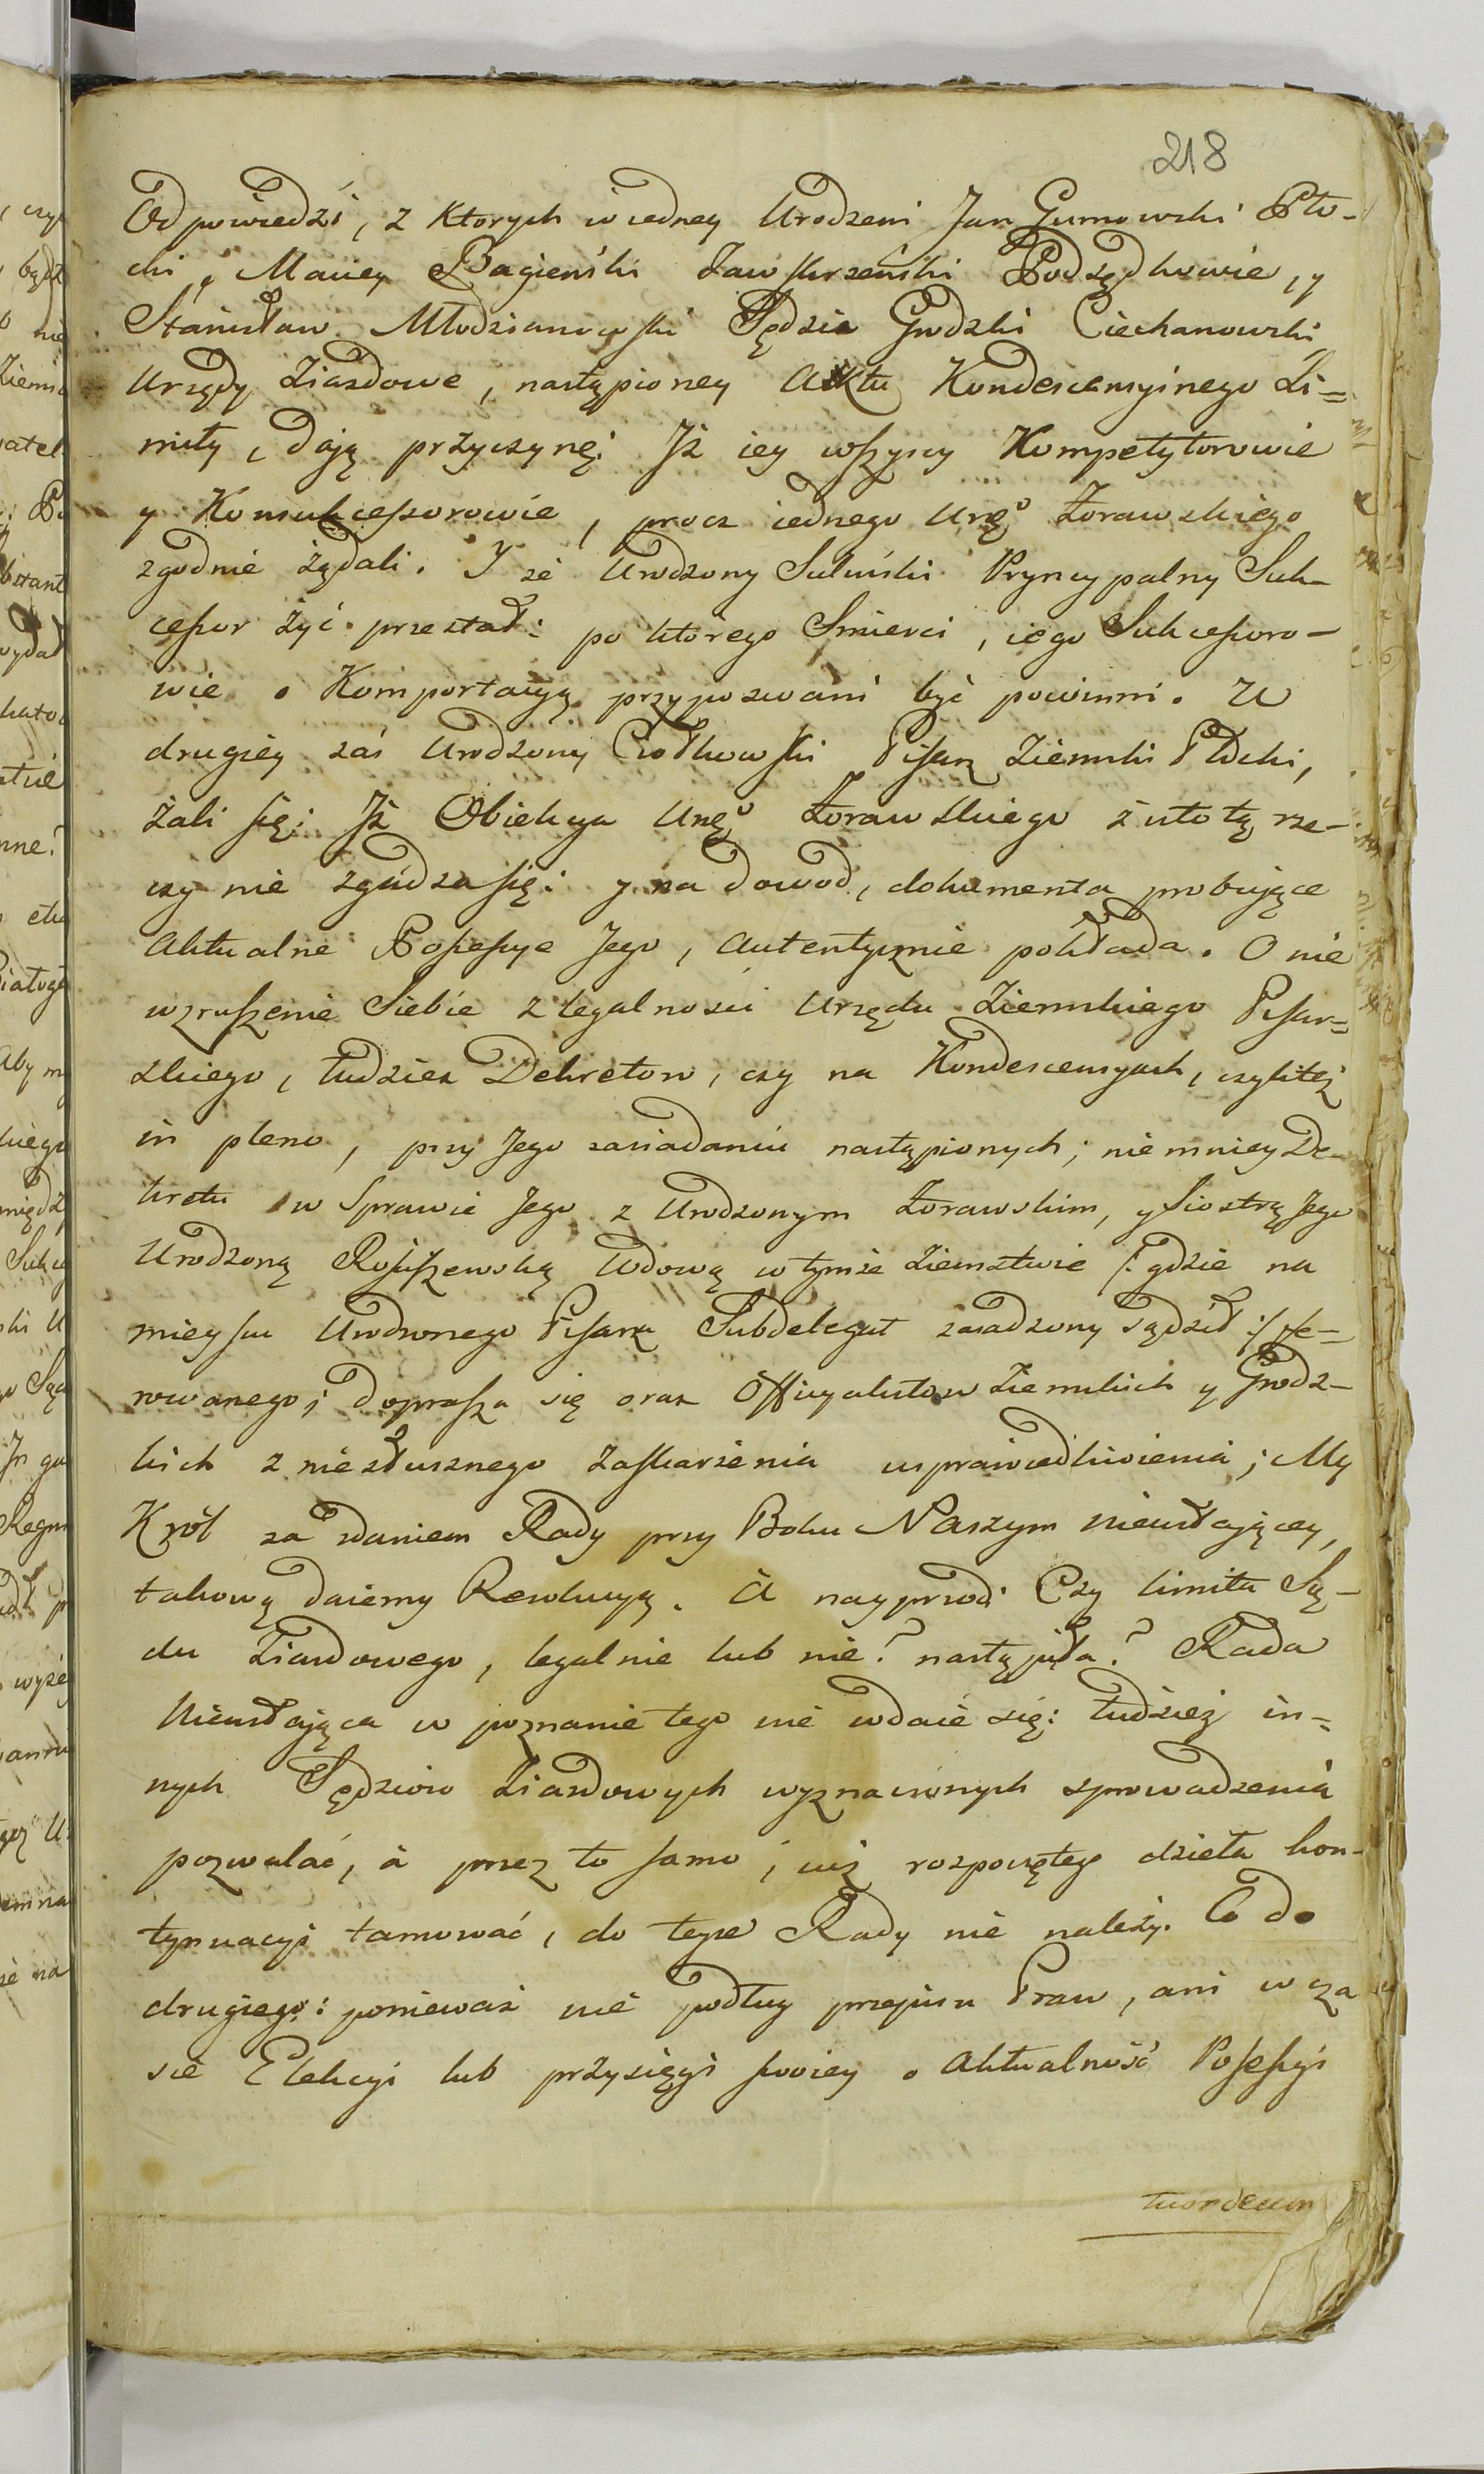 218
Odpowiedzi, z Ktorych w iedney Urodzeni Jan Gumowski Pło-
cki, Maciey Bagieński Zawskrzeński Podsędkowie, y
Stanisław Młodzianowski Sędzia Grodzki Ciechanowski
Urzędy Ziazdowe, nastąpioney Aktu Kondescensyinego Li=
mity, dają przyczynę: Jż iey wszyscy Kompetytorowie
y Konsukcessorowie, procz iednego Urgo Zorawskiego
zgodnie żądali. Y ze Urodzony Suliński Pryncypalny Suk-
cessor żyć przestał: po ktorego Smierci, iego Sukcessoro-
wie o Komportacyą przypozwani być powinni. W
drugiey zaś Urodzony Ciołkowski Pisarz Ziemski Płocki,
żali się: Jż Obiekcya Urgo Zorawskiego z istotą rze-
czy nie zgadza się: y na dowod, dokumenta probuiące
Aktualne Possessye Jego, Autentycznie pokłada. O nie
wzruszenie Siebie z legalnosci Urzędu Ziemskiego Pisar=
skiego, tudziesz Dekretow, czy na Kondescensyach, czyliteż
in pleno, przy Jego zasiadaniu nastąpionych; niemniey De-
kretu w Sprawie Jego z Urodzonym Zorawskim, y Siostrą Jego
Urodzoną Rościszewską Wdową w tymże Ziemstwie /: gdzie na
mieyscu Urodzonego Pisarza Subdelegat zasadzony sądził :/ fe-
rowanego; doprasza się oraz Officyalistow Ziemskich y Grodz-
kich z niesłusznego zaskarzenia usprawiedliwienia; My
Król za zdaniem Rady przy Boku Naszym nieustaiącey,
takową daiemy Rezolucyą. A nayprzod: Czy limita Są-
du Ziazdowego, legalnie lub nie? nastąpiła? Rada
Nieustaiąca w poznanie tego nie wdaie się: tudzież in=
nych Sędziow Ziazdowych wyznaczonych sprowadzenia
pozwalać, à przez to samo, iuż rozpoczętego dzieła kon-
tynuacyi tamować, do teyże Rady nie należy. Co do
drugiego: poniewaz nie podług przepisu Praw, ani w cza
sie Elekcyi lub przysięgi swoiey o Aktualność Possessyi